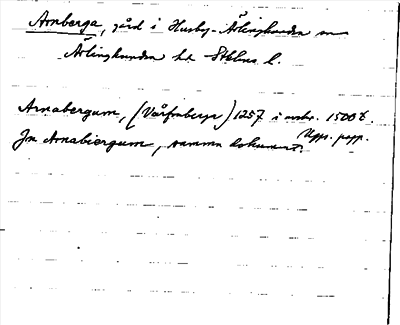 Arnberga, gård i Husby-Ärlinghundra sn
Ärlinghundra hd Sthlms l.
Arnabergum, (Vårfruberga) 1257 i avskr. 1500 t.
Upps. papp.
Jn Arnabiærgum, samma dokument.